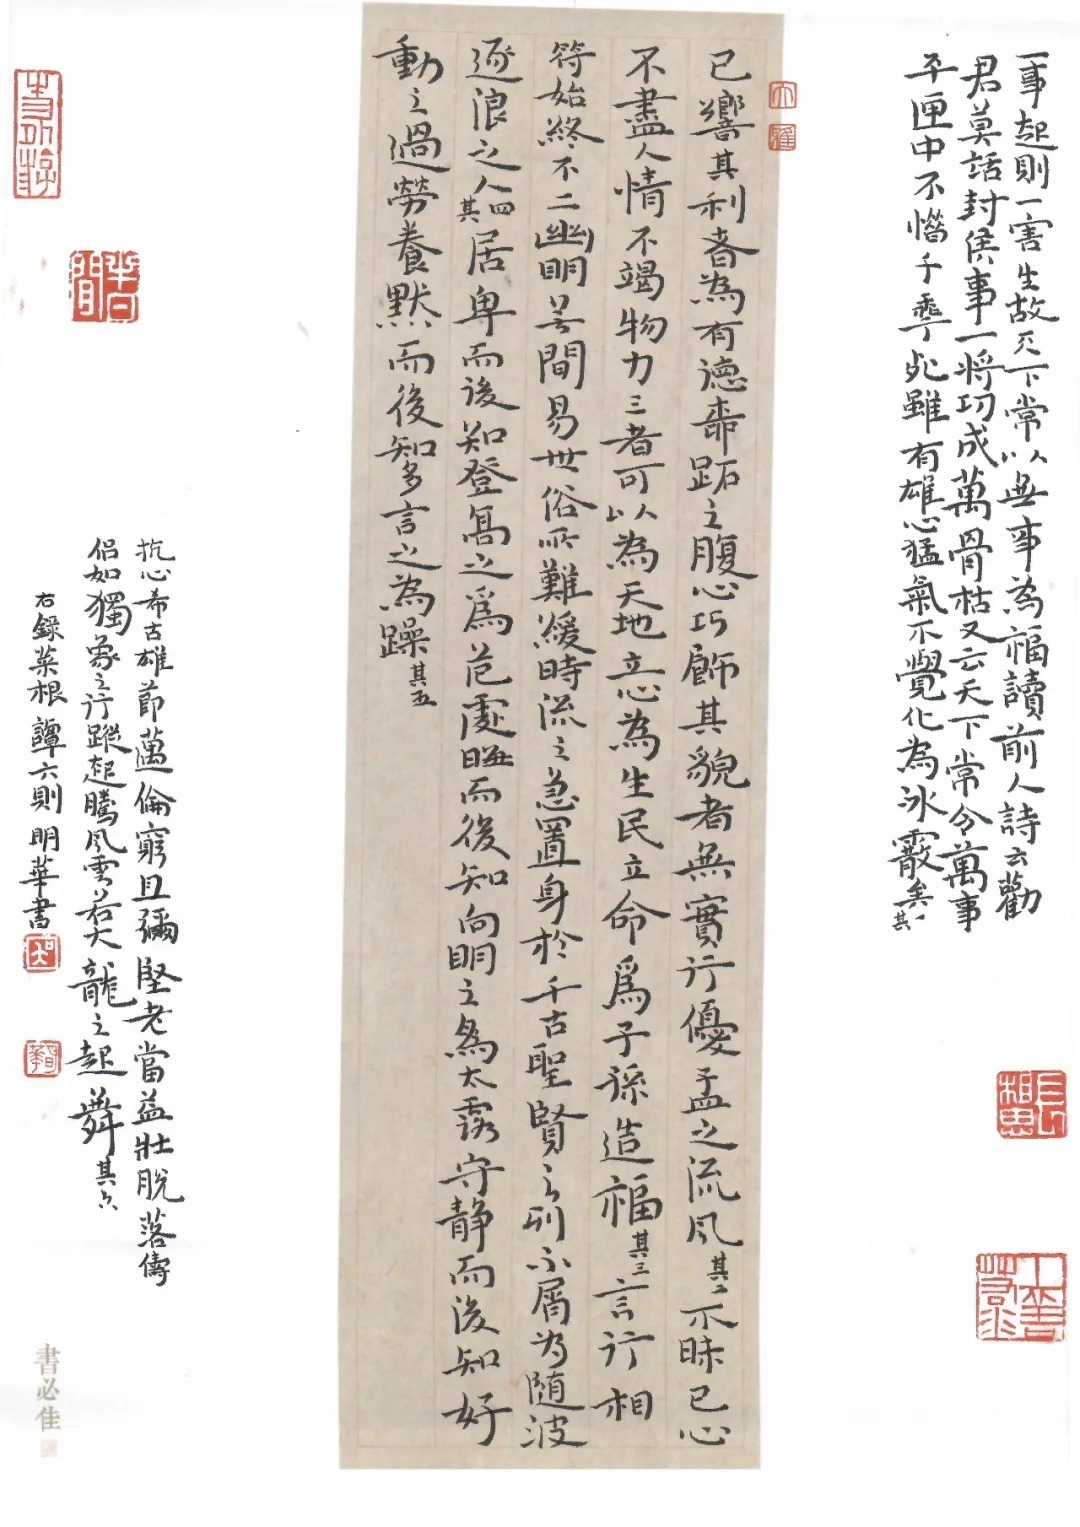 一事起則一害生故天下常以無事為福讀前人詩云勸
君莫話封侯事一將功成萬骨枯又云天下常令萬事
平匣中不惜千年死雖有雄心猛氣不覺化為冰霰矣其一
已嚮其利者為有德柰跖之腹心巧飾其貌者無實行優孟之流風其二不昧己心
不盡人情不竭物力三者可以為天地立心為生民立命爲子孫造福其三言行相
符始終不二幽明無間易世俗所難緩時流之急置身於千古聖賢之列不屑為隨波
逐浪之人其四居卑而後知登高之爲危處晦而後知向明之為太露守靜而後知好
動之過勞養默而後知多言之為躁其五
抗心希古雄節邁倫窮且彌堅老當益壯脫落儔
侶如獨象之行蹤超騰風雲若大龍之起舞其六
右錄菜根譚六則明華書
書必佳